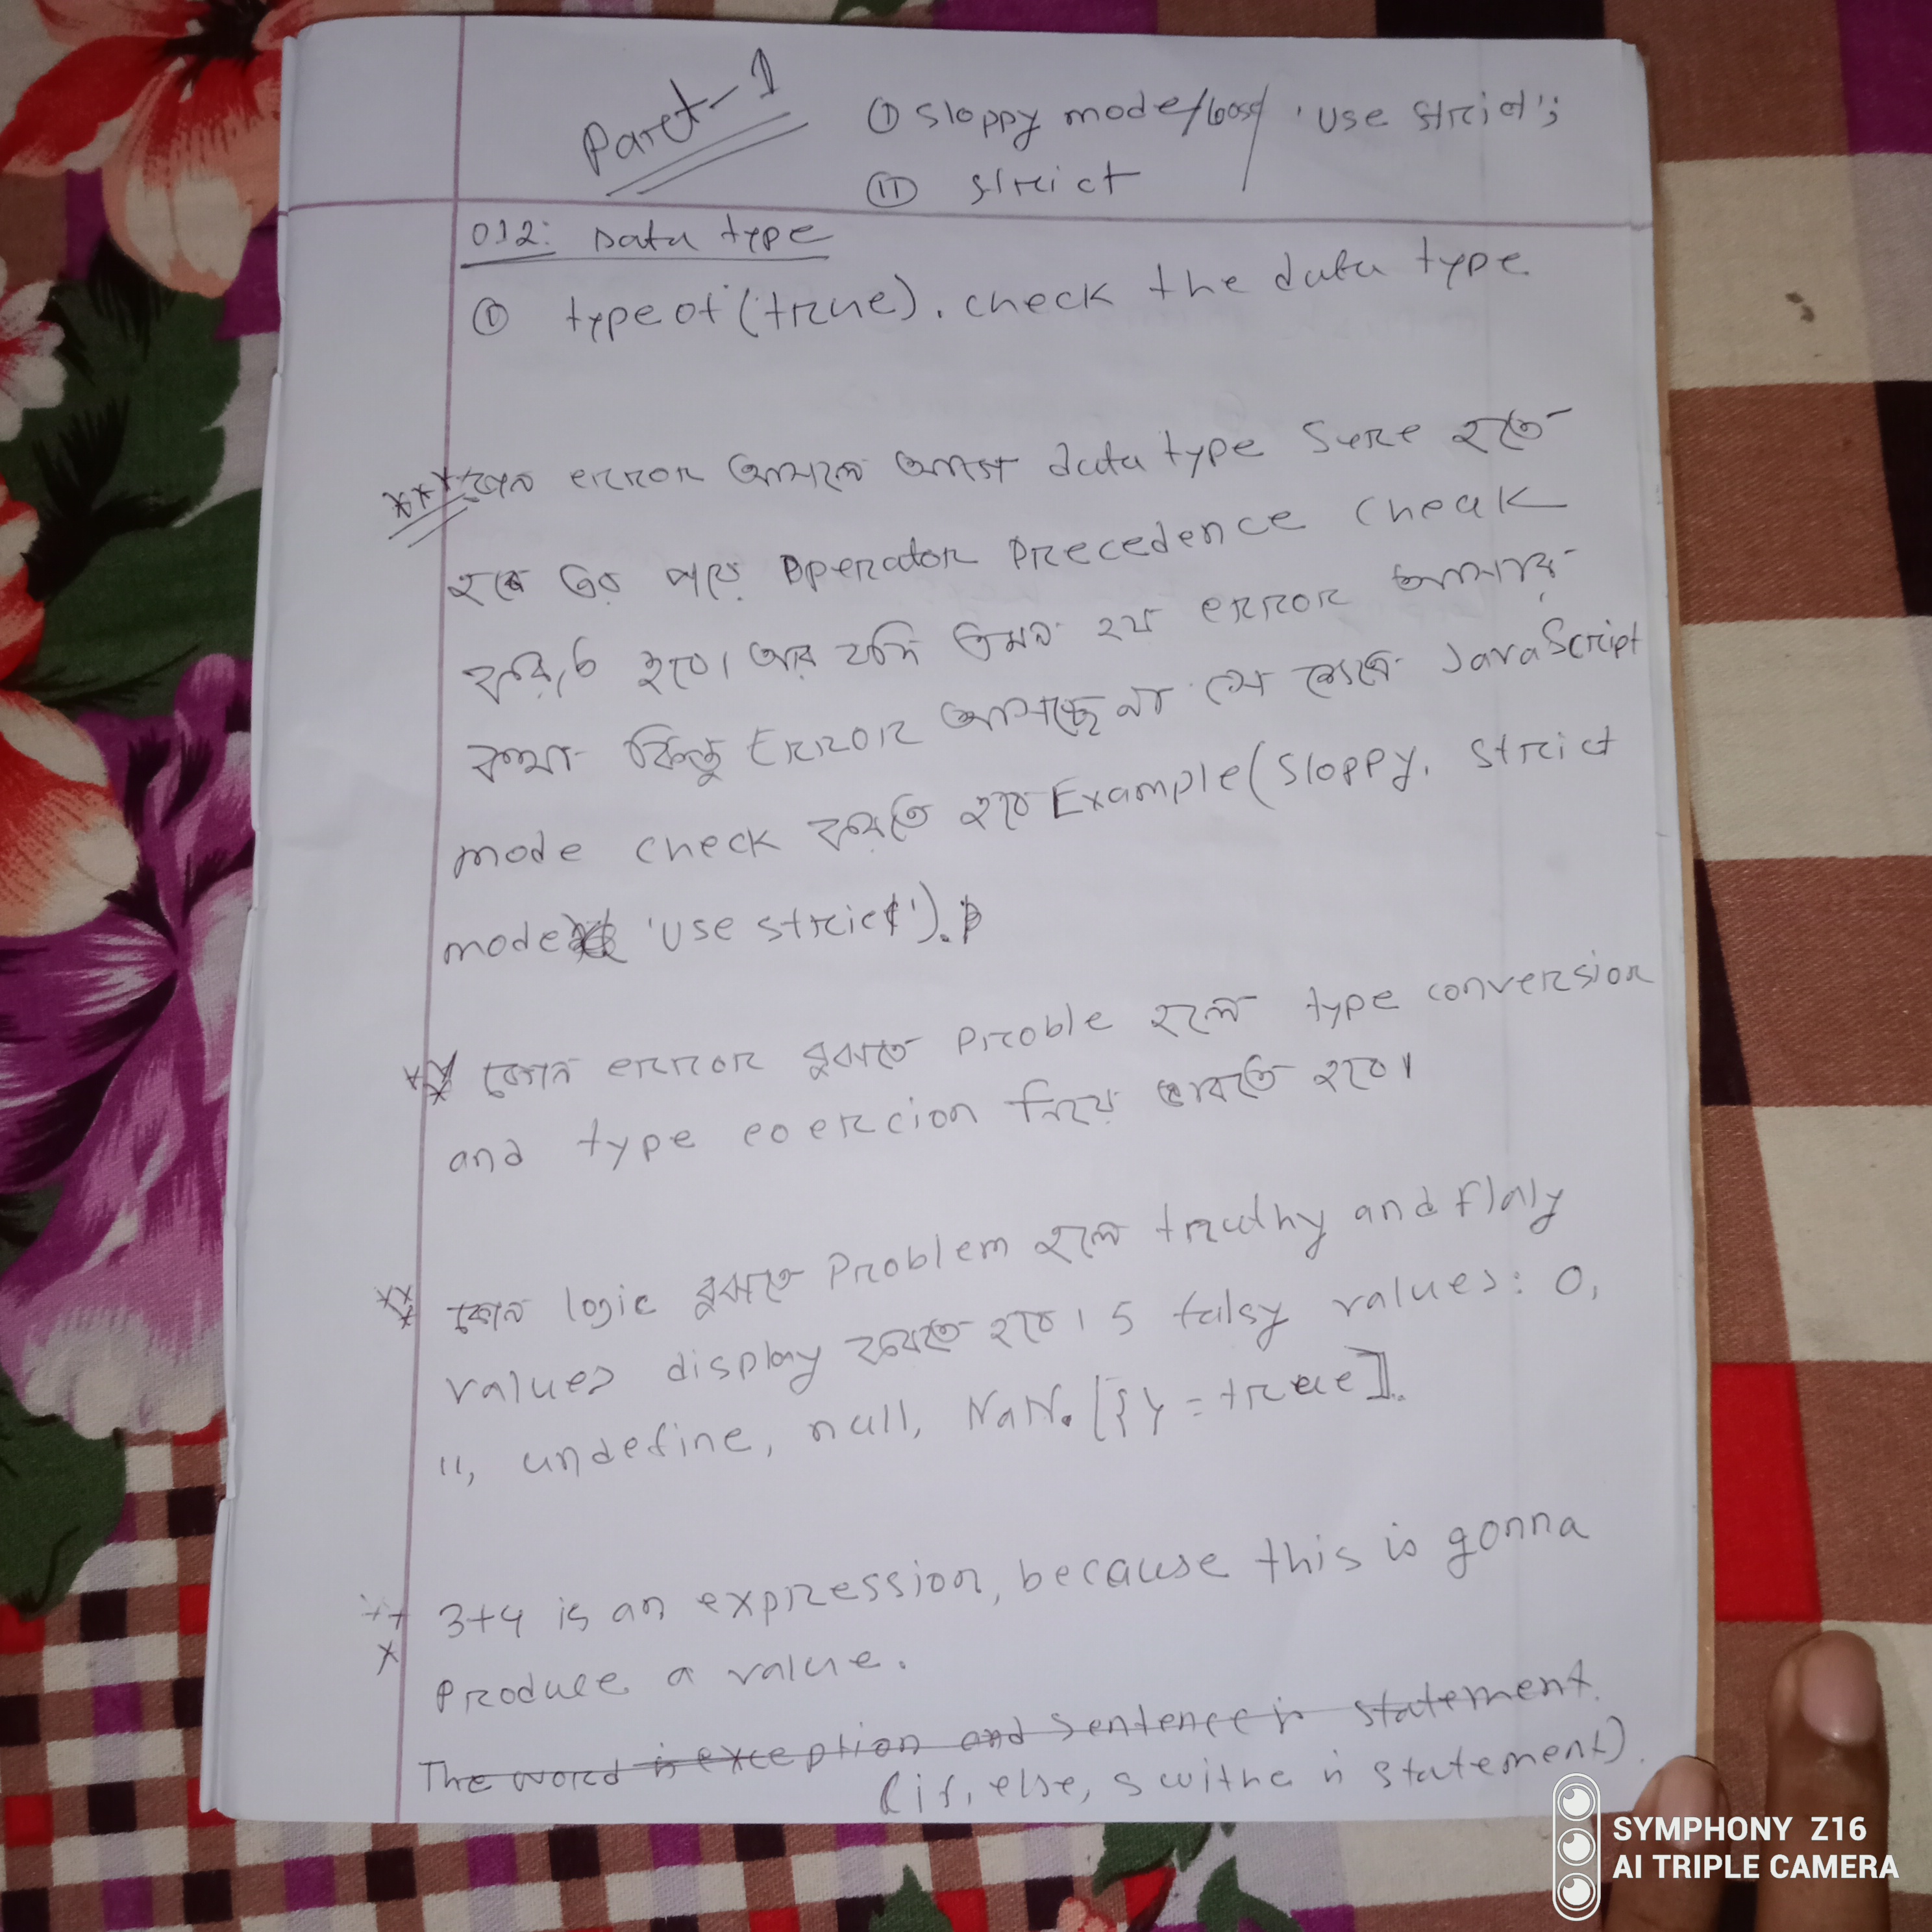 Part-1
① sloppy mode/ 'use strict';
② strict
012: Data type
① typeof(true). check the data type
*** কোন error আসলে আগে data type Sure হতে
হবে তার পরে Operator Precedence Cheak
করতে হবে। আর যদি এমন হয় error আসার
কথা কিন্তু Error আসছে না সে ক্ষেত্রে JavaScript
mode check করতে হবে Example(Sloppy, strict
mode 'use strict').
** কোন error বুঝতে Proble হলে type conversion
and type coercion নিয়ে ভাবতে হবে।
** কোন logic বুঝতে Problem হলে truthy and flaly
values display করতে হবে। 5 falsy values: 0,
'', undefine, null, NaN. [{} = true].
** 3+4 is an expression, because this is gonna
* Produce a value.
The word is exception and sentence is statement.
(if, else, swithe is statement).
SYMPHONY Z16
AI TRIPLE CAMERA